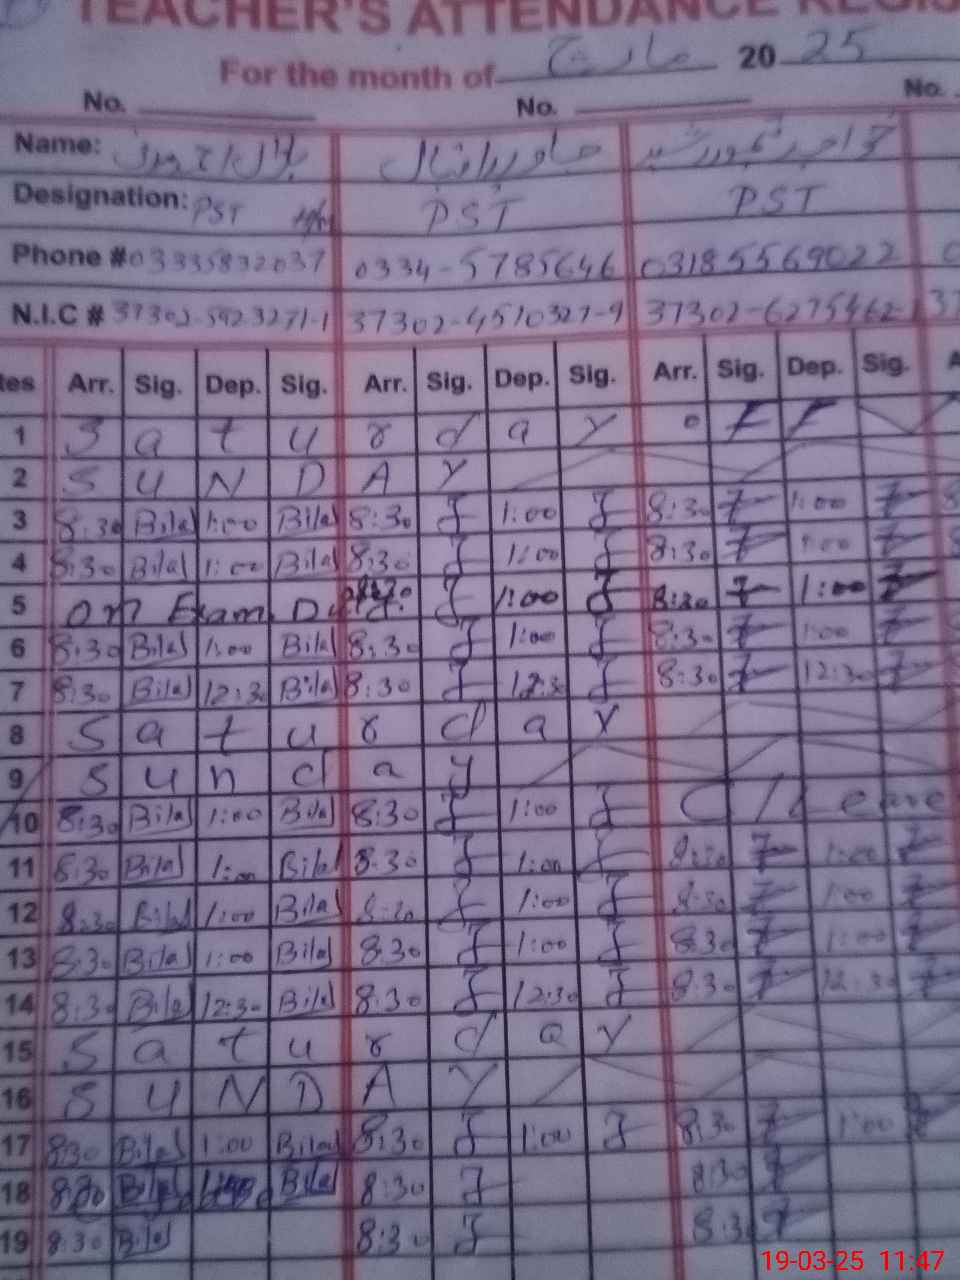 TEACHER'S ATTENDANCE REGIS
For the month of مارچ 20 25
No. No. No.
Name: بلال احمد
Designation: PST PST PST
Phone # 03335832037 0334-5785646 03185569022
N.I.C # 37302-5923271-1 37302-4510327-9 37302-6275462-1 37
tes Arr. Sig. Dep. Sig. Arr. Sig. Dep. Sig. Arr. Sig. Dep. Sig. A
1 Saturday off
2 SUNDAY
3 8:30 Bilal 1:00 Bilal 8:30 1:00 8:30 1:00
4 8:30 Bilal 1:00 Bilal 8:30 1:00 8:30 1:00
5 On Exam Duty 1:00 8:30 1:00
6 8:30 Bilal 1:00 Bilal 8:30 1:00 8:30 1:00
7 8:30 Bilal 12:30 Bilal 8:30 12:30 8:30 12:30
8 Saturday
9 Sunday
10 8:30 Bilal 1:00 Bilal 8:30 1:00 C/Leave
11 8:30 Bilal 1:00 Bilal 8:30 1:00 8:30 1:00
12 8:30 Bilal 1:00 Bilal 8:30 1:00 8:30 1:00
13 8:30 Bilal 1:00 Bilal 8:30 1:00 8:30 1:00
14 8:30 Bilal 12:30 Bilal 8:30 12:30 8:30 12:30
15 Saturday
16 SUNDAY
17 8:30 Bilal 1:00 Bilal 8:30 1:00 8:30 1:00
18 8:30 Bilal Bilal 8:30 8:30
19 8:30 Bilal 8:30 8:30
19-03-25 11:47